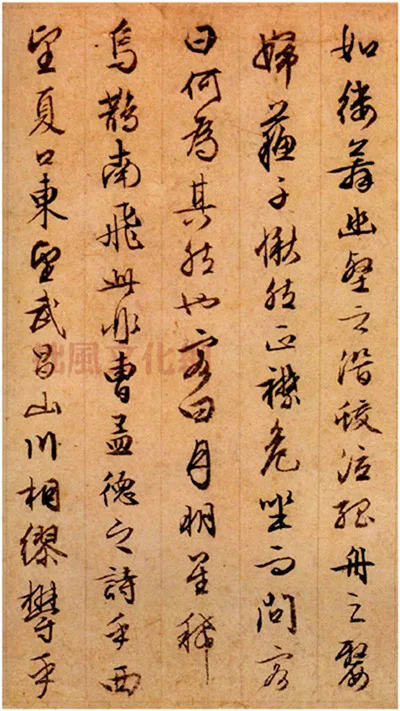 如縷舞幽壑之潛蛟泣孤舟之嫠
婦蘇子愀然正襟危坐而問客
曰何為其然也客曰月明星稀
烏鵲南飛此非曹孟德之詩乎西
望夏口東望武昌山川相繆鬱乎
風文化